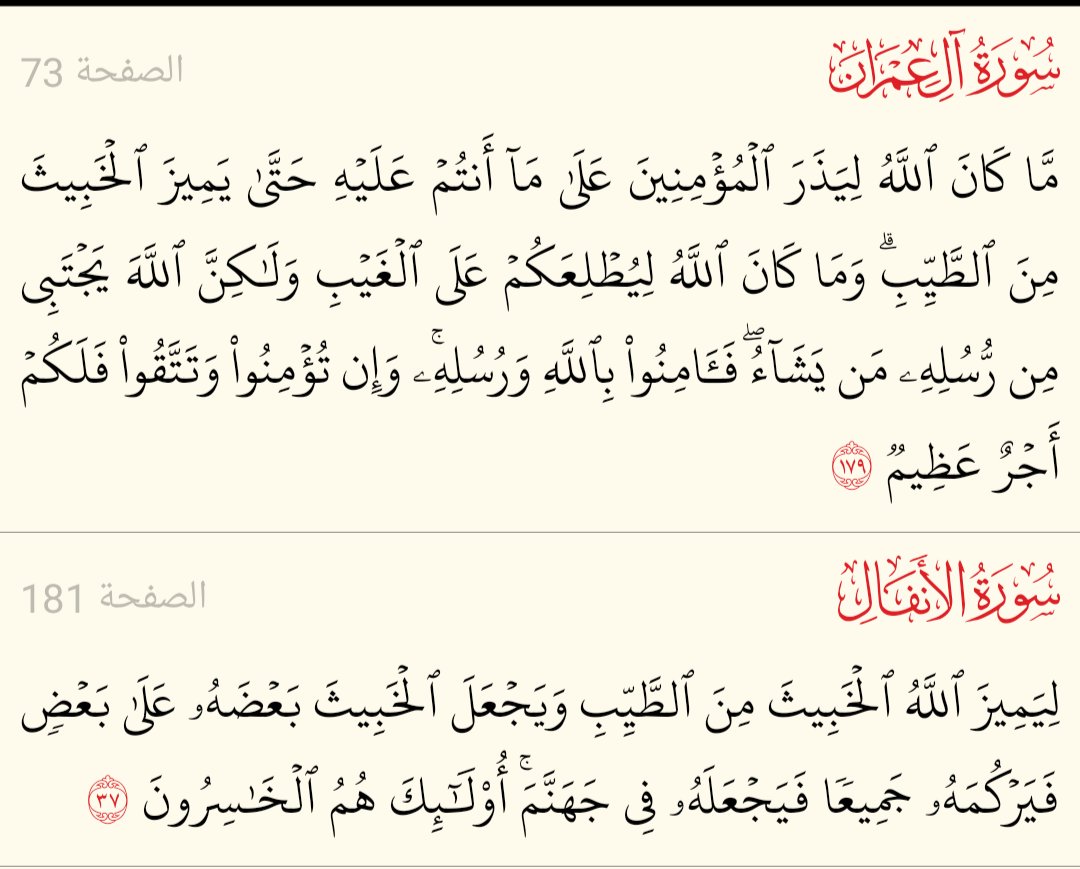 سُورَةُ آلِ عِمْرَانَ
الصفحة 73
مَّا كَانَ ٱللَّهُ لِيَذَرَ ٱلْمُؤْمِنِينَ عَلَىٰ مَآ أَنتُمْ عَلَيْهِ حَتَّىٰ يَمِيزَ ٱلْخَبِيثَ
مِنَ ٱلطَّيِّبِۗ وَمَا كَانَ ٱللَّهُ لِيُطْلِعَكُمْ عَلَى ٱلْغَيْبِ وَلَـٰكِنَّ ٱللَّهَ يَجْتَبِى
مِن رُّسُلِهِۦ مَن يَشَآءُۖ فَـَٔامِنُوا۟ بِٱللَّهِ وَرُسُلِهِۦۚ وَإِن تُؤْمِنُوا۟ وَتَتَّقُوا۟ فَلَكُمْ
أَجْرٌ عَظِيمٌ ١٧٩
سُورَةُ الأَنفَالِ
الصفحة 181
لِيَمِيزَ ٱللَّهُ ٱلْخَبِيثَ مِنَ ٱلطَّيِّبِ وَيَجْعَلَ ٱلْخَبِيثَ بَعْضَهُۥ عَلَىٰ بَعْضٍ
فَيَرْكُمَهُۥ جَمِيعًا فَيَجْعَلَهُۥ فِى جَهَنَّمَۚ أُو۟لَـٰٓئِكَ هُمُ ٱلْخَـٰسِرُونَ ٣٧